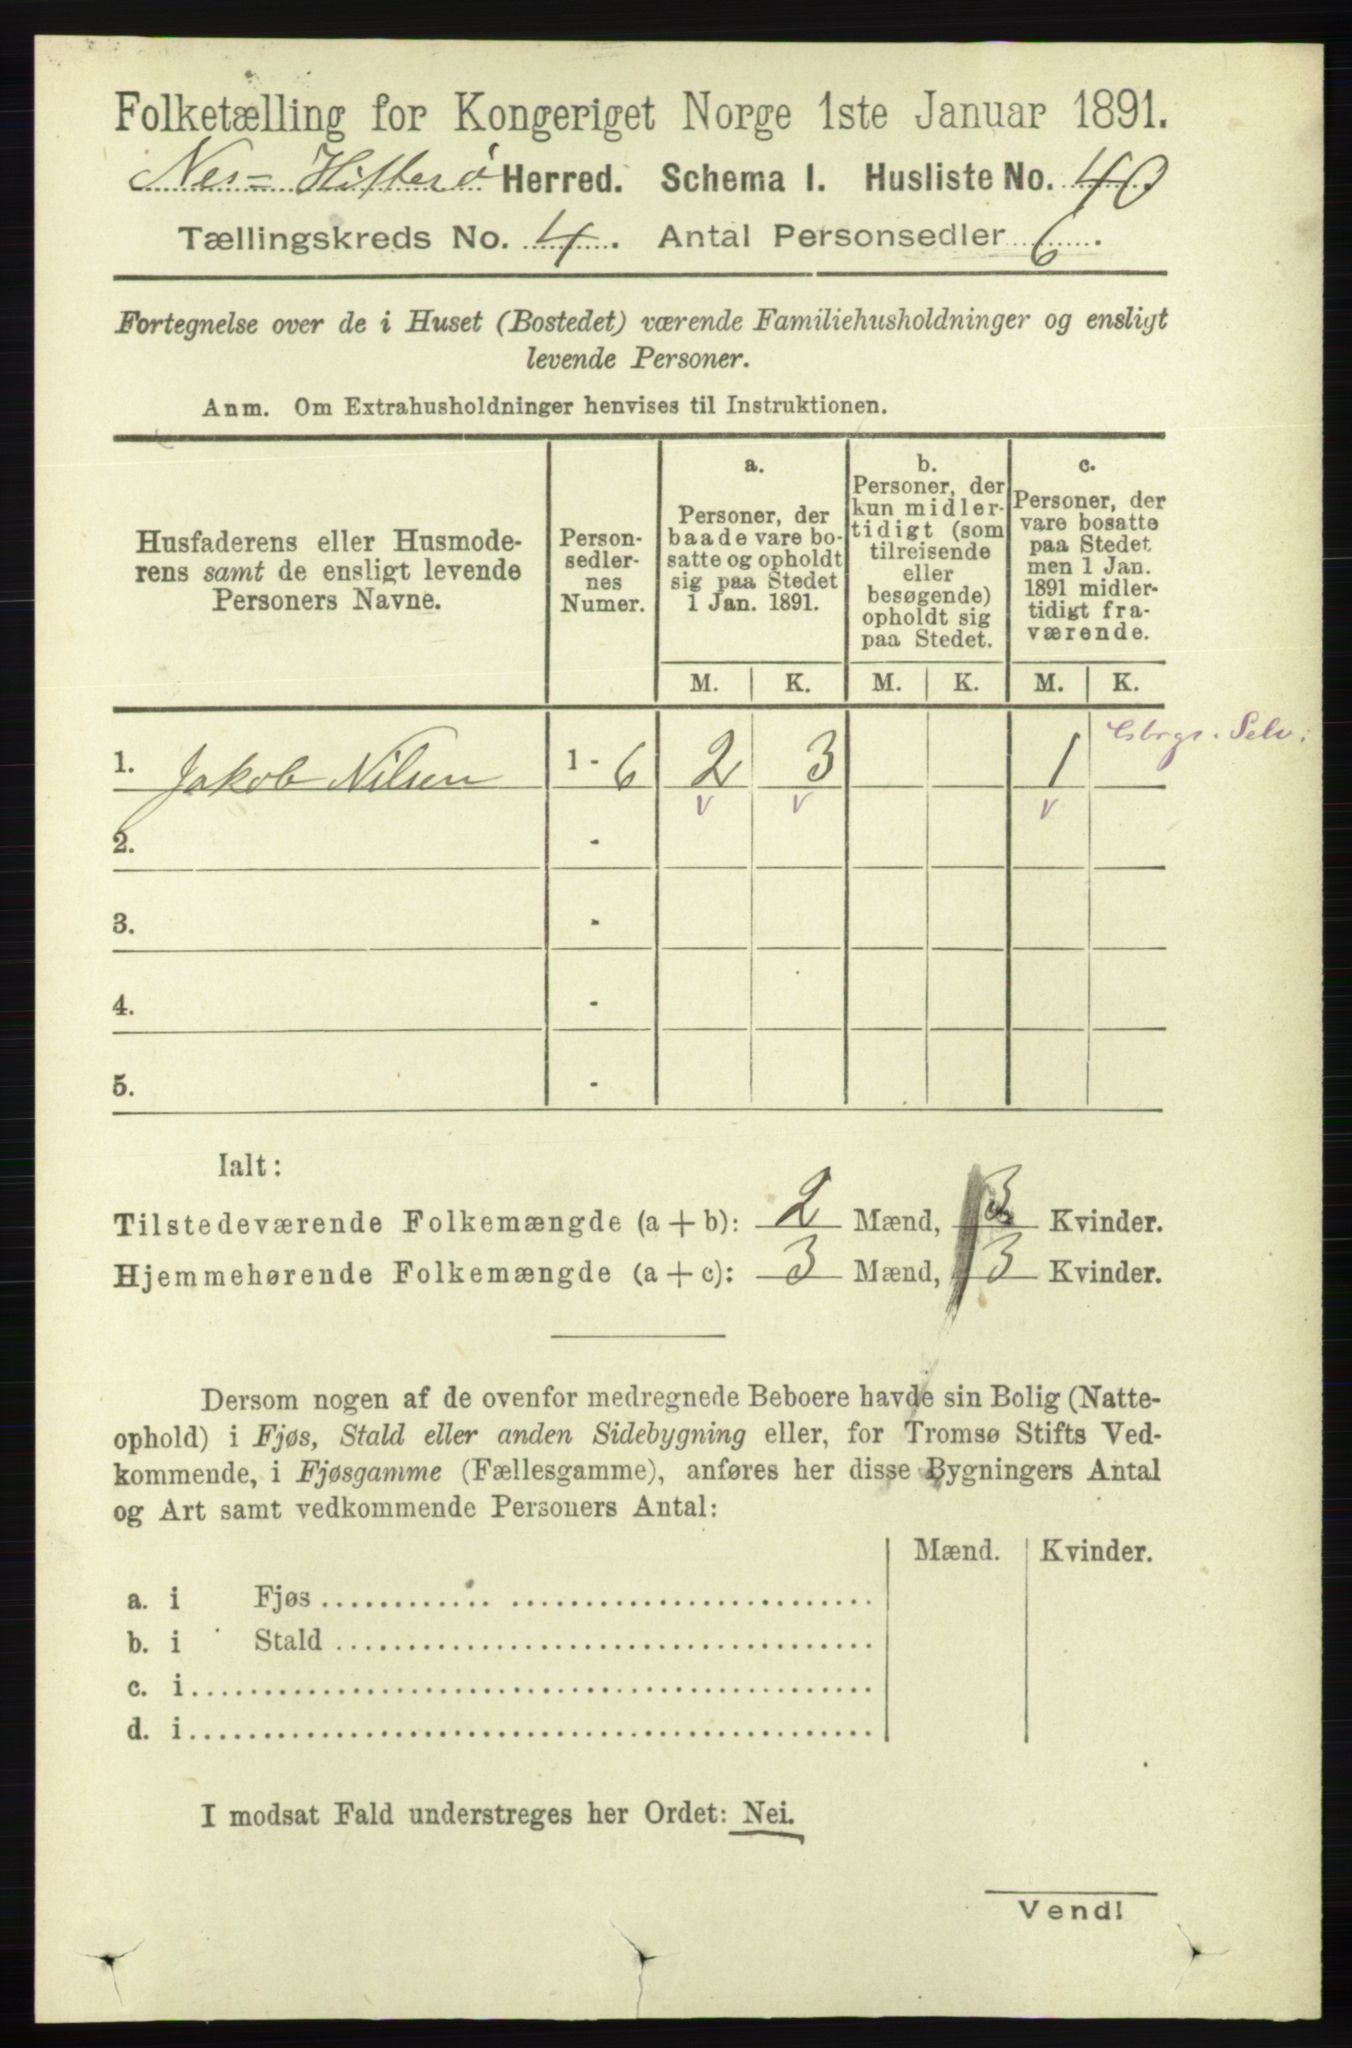 Folketælling for Kongeriget Norge 1ste Januar 1891.
Nes-Hitterø Herred. Schema I. Husliste No. 40
Tællingskreds No. 4. Antal Personsedler 6.
Fortegnelse over de i Huset (Bostedet) værende Familiehusholdninger og ensligt
levende Personer.
Anm. Om Extrahusholdninger henvises til Instruktionen.
Husfaderens eller Husmode-
rens samt de ensligt levende
Personers Navne.
Person-
sedler-
nes
Numer.
a.
Personer, der
baade vare bo-
satte og opholdt
sig paa Stedet
1 Jan. 1891.
b.
Personer, der
kun midler-
tidigt (som
tilreisende
eller
besøgende)
opholdt sig
paa Stedet.
c.
Personer, der
vare bosatte
paa Stedet
men 1 Jan.
1891 midler-
tidigt fra-
værende.
M. K. M. K. M. K.
1. Jakob Nilsen 1 - 6 2 3 1
v v v
2. -
3. -
4. -
5. -
Ialt:
Tilstedeværende Folkemængde (a + b): 2 Mænd, 3 Kvinder.
Hjemmehørende Folkemængde (a + c): 3 Mænd, 3 Kvinder.
Dersom nogen af de ovenfor medregnede Beboere havde sin Bolig (Natte-
ophold) i Fjøs, Stald eller anden Sidebygning eller, for Tromsø Stifts Ved-
kommende, i Fjøsgamme (Fællesgamme), anføres her disse Bygningers Antal
og Art samt vedkommende Personers Antal:
Mænd. Kvinder.
a. i Fjøs
b. i Stald
c. i
d. i
I modsat Fald understreges her Ordet: Nei.
Vend!